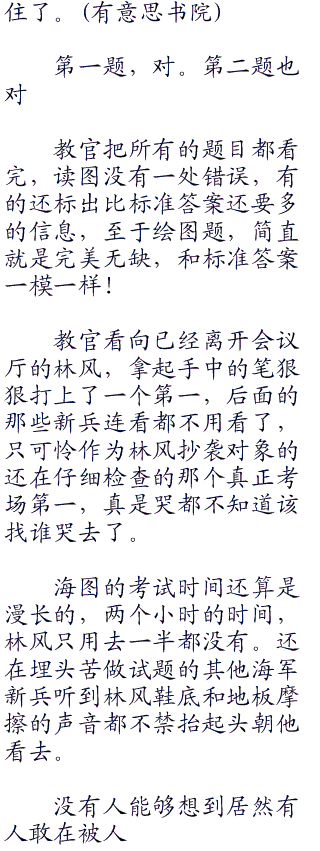 住了。(有意思书院)
第一题，对。第二题也
对
教官把所有的题目都看
完，读图没有一处错误，有
的还标出比标准答案还要多
的信息，至于绘图题，简直
就是完美无缺，和标准答案
一模一样！
教官看向已经离开会议
厅的林风，拿起手中的笔狠
狠打上了一个第一，后面的
那些新兵连看都不用看了，
只可怜作为林风抄袭对象的
还在仔细检查的那个真正考
场第一，真是哭都不知道该
找谁哭去了。
海图的考试时间还算是
漫长的，两个小时的时间，
林风只用去一半都没有。还
在埋头苦做试题的其他海军
新兵听到林风鞋底和地板摩
擦的声音都不禁抬起头朝他
看去。
没有人能够想到居然有
人敢在被人